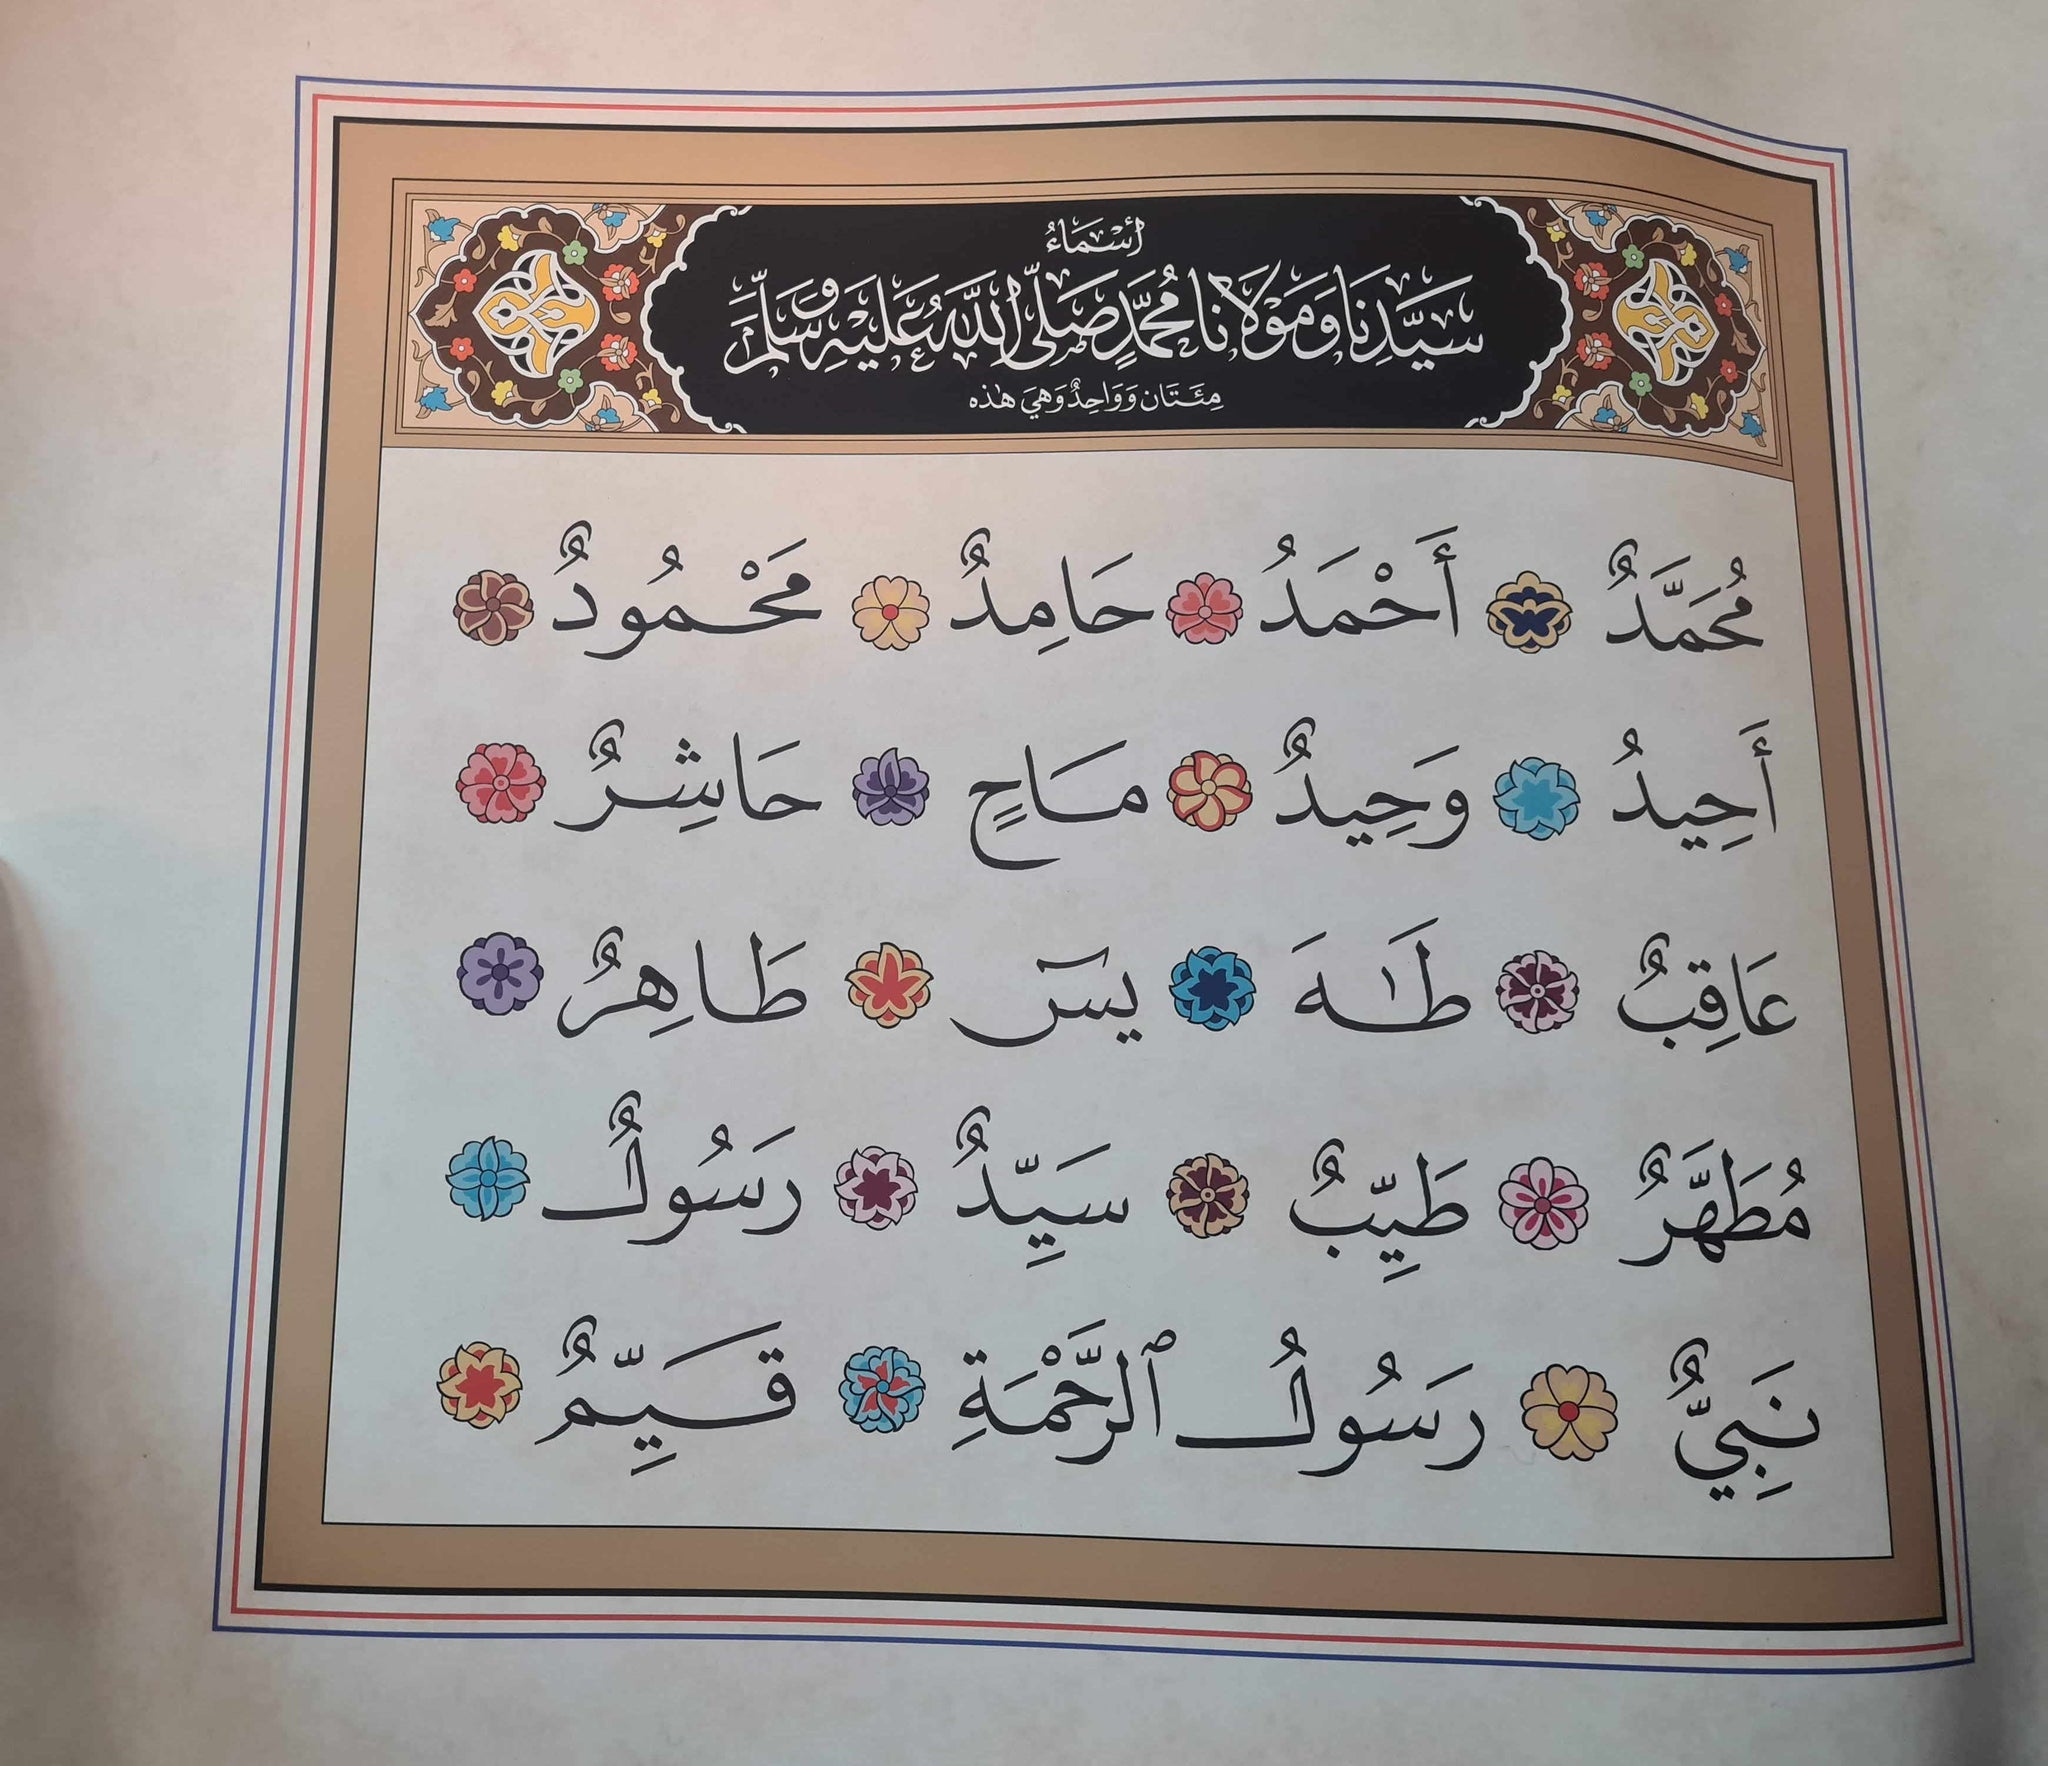 أَسْمَاءُ
سَيِّدِنَا وَمَوْلَانَا مُحَمَّدٍ صَلَّى اللَّهُ عَلَيْهِ وَسَلَّمَ
مِئَتَان وَوَاحِدٌ وَهِيَ هٰذه
مُحَمَّدٌ أَحْمَدُ حَامِدٌ مَحْمُودٌ
أَحِيدُ وَحِيدٌ مَاحٍ حَاشِرٌ
عَاقِبٌ طٰهَ يسٓ طَاهِرٌ
مُطَهَّرٌ طَيِّبٌ سَيِّدٌ رَسُولٌ
نَبِيٌّ رَسُولُ ٱلرَّحْمَةِ قَيِّمٌ